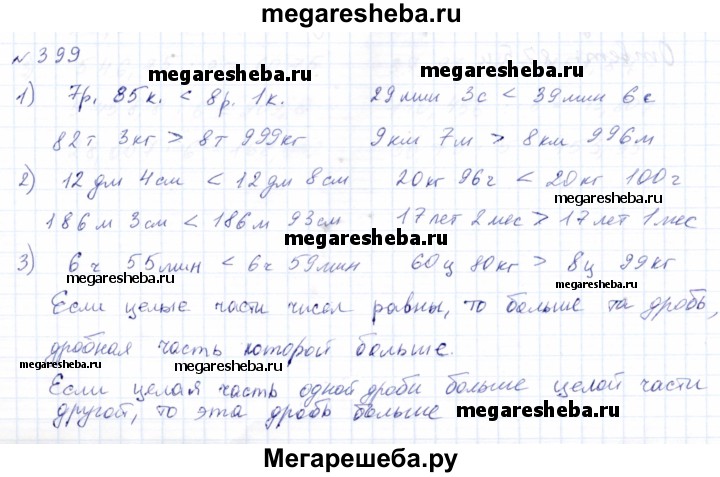 megaresheba.ru
№ 399
megaresheba.ru
1) 7р. 85к. < 8р. 1к. 29мин 3с < 39мин 6с
82т 3кг > 8т 999кг 9км 7м > 8км 996м
2) 12дм 4см < 12дм 8см 20кг 96г < 20кг 100г
186м 3см < 186м 93см 17лет 2мес > 17лет 1мес
megaresheba.ru
3) 6ч 55мин < 6ч 59мин 60ц 80кг > 8ц 99кг
megaresheba.ru megaresheba.ru
Если целые части чисел равны, то больше та дробь,
дробная часть которой больше.
megaresheba.ru megaresheba.ru
Если целая часть одной дроби больше целой части
другой, то эта дробь больше megaresheba.ru
Мегарешеба.ру